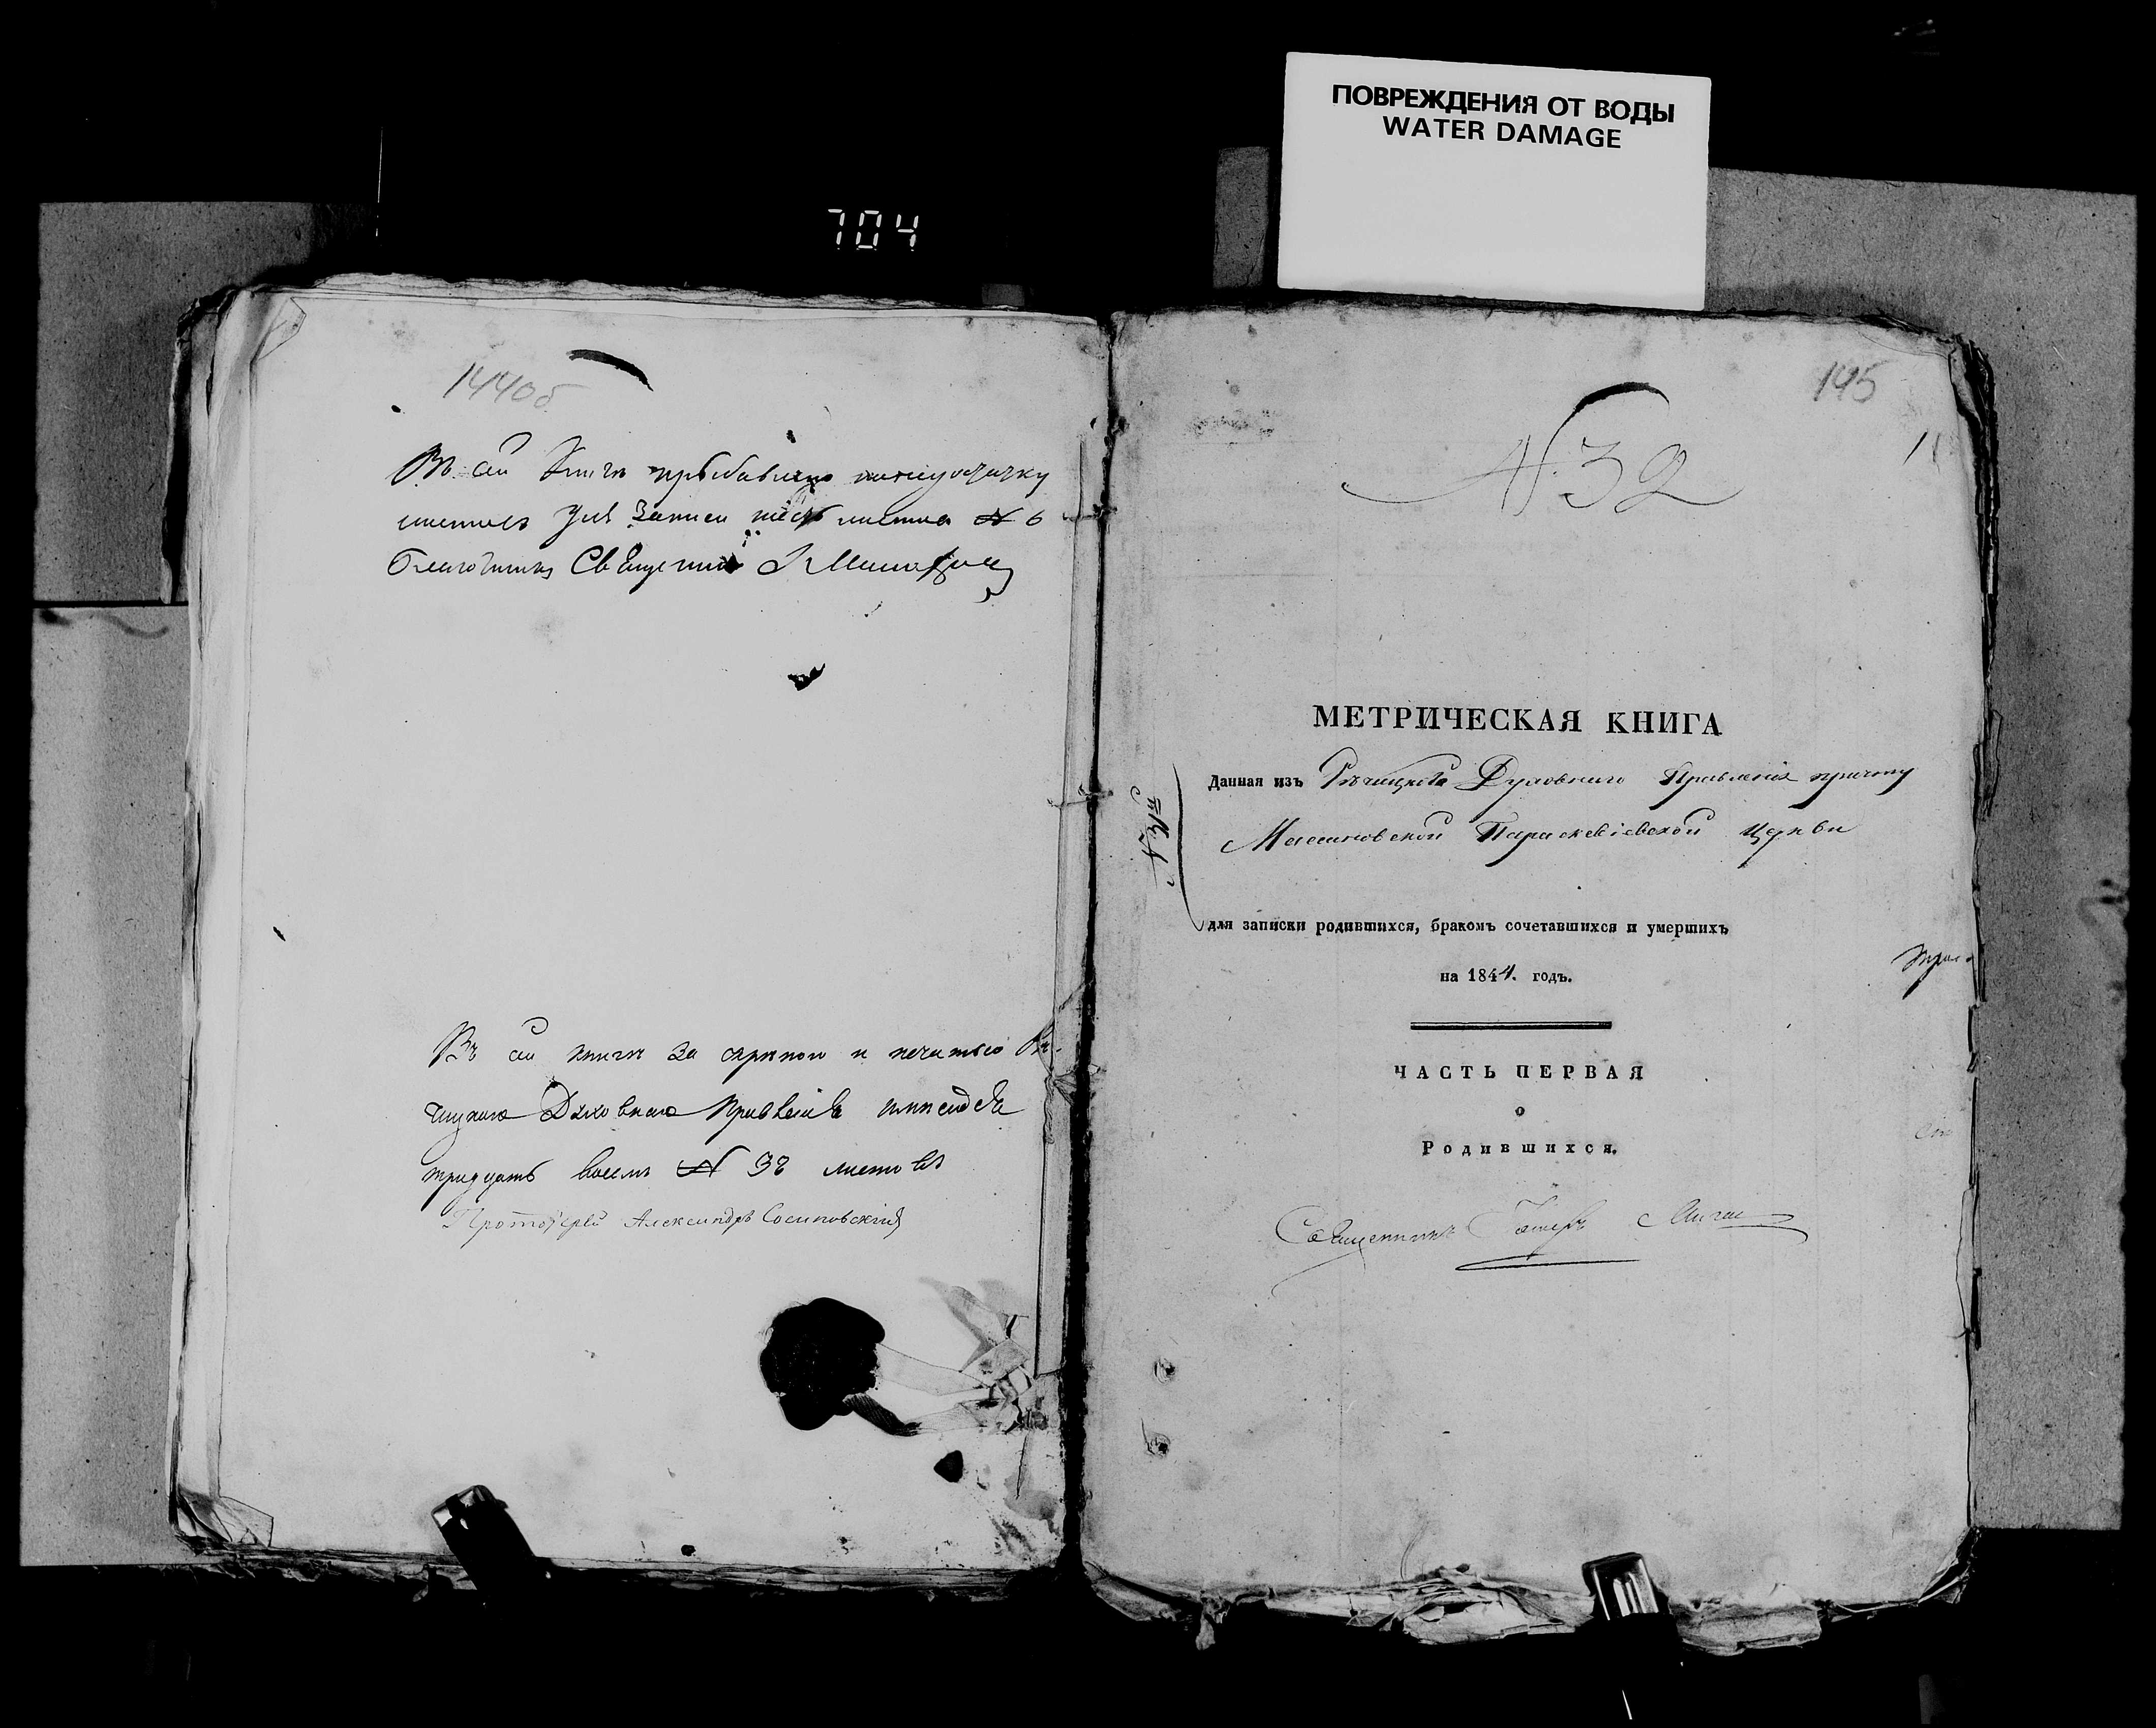 ПОВРЕЖДЕНИЯ ОТ ВОДЫ
WATER DAMAGE
704
144об
Въ сей Книгѣ прибавлено
листовъ для Записи шесть листовъ № 6
Благочинный Священникъ
Въ сей книгѣ за скрѣпою и печатью Рѣ-
чицкаго Духовнаго Правленія
тридцать восемь № 38 листовъ
Протоіерей Александръ Сосиновскій
145
N 32
МЕТРИЧЕСКАЯ КНИГА
Данная изъ Рѣчицкаго Духовнаго Правленія причту
Параскевіевской Церкви
для записки родившихся, бракомъ сочетавшихся и умершихъ
на 1844. годъ.
ЧАСТЬ ПЕРВАЯ
о
Родившихся.
Священникъ